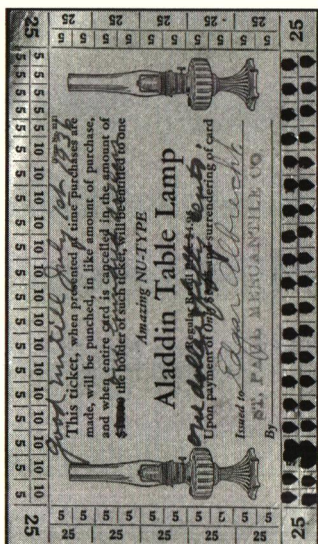 good untill July 1st 1936
This ticket, when presented at time purchases are
made, will be punched, in like amount of purchase,
and when entire card is cancelled in the amount of
the holder of such ticket, will be entitled to one
Amazing NU-TYPE
Aladdin Table Lamp
Regular Retail
one dollar & fifty cents,
Upon payment of Only and surrendering of card
Issued to Edgar Albrecht.
By ST. PAUL MERCANTILE CO
25 25 25 25 25 25 25
5 5 5 5 5 5 5 5 5 5
25 5 5 5 5 5 10 10 10 10 10 10 10 10 10 10 25
25 25 25 25 25
5 5 5 5 5 5 5 5
25 25